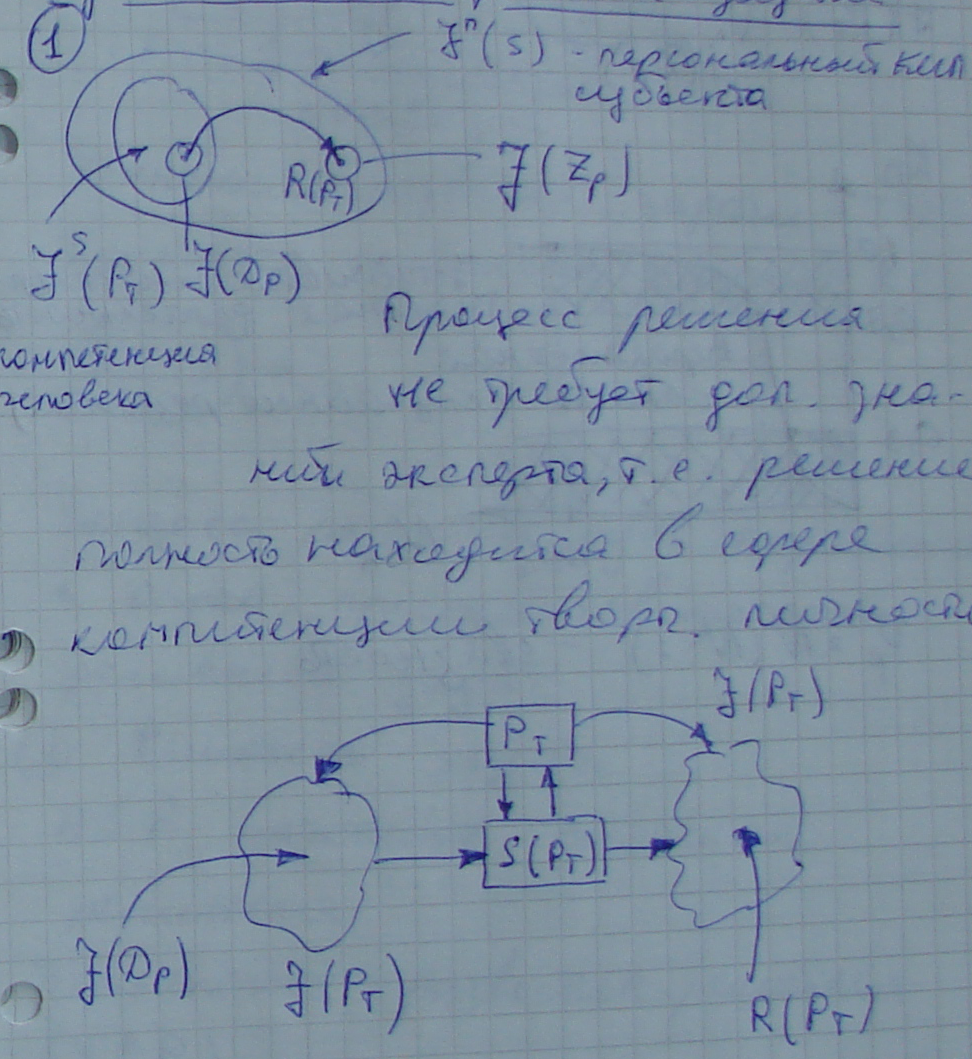 1
J^п(S) - персональный кип
субъекта
R(P_T)
J(Z_P)
J^S(P_T) J(D_P)
компетенция
человека
Процесс решения
не требует доп. зна-
ний эксперта, т.е. решение
полность находится в сфере
компитенции творч. личности
J(P_T)
P_T
S(P_T)
J(D_P)
J(P_T)
R(P_T)